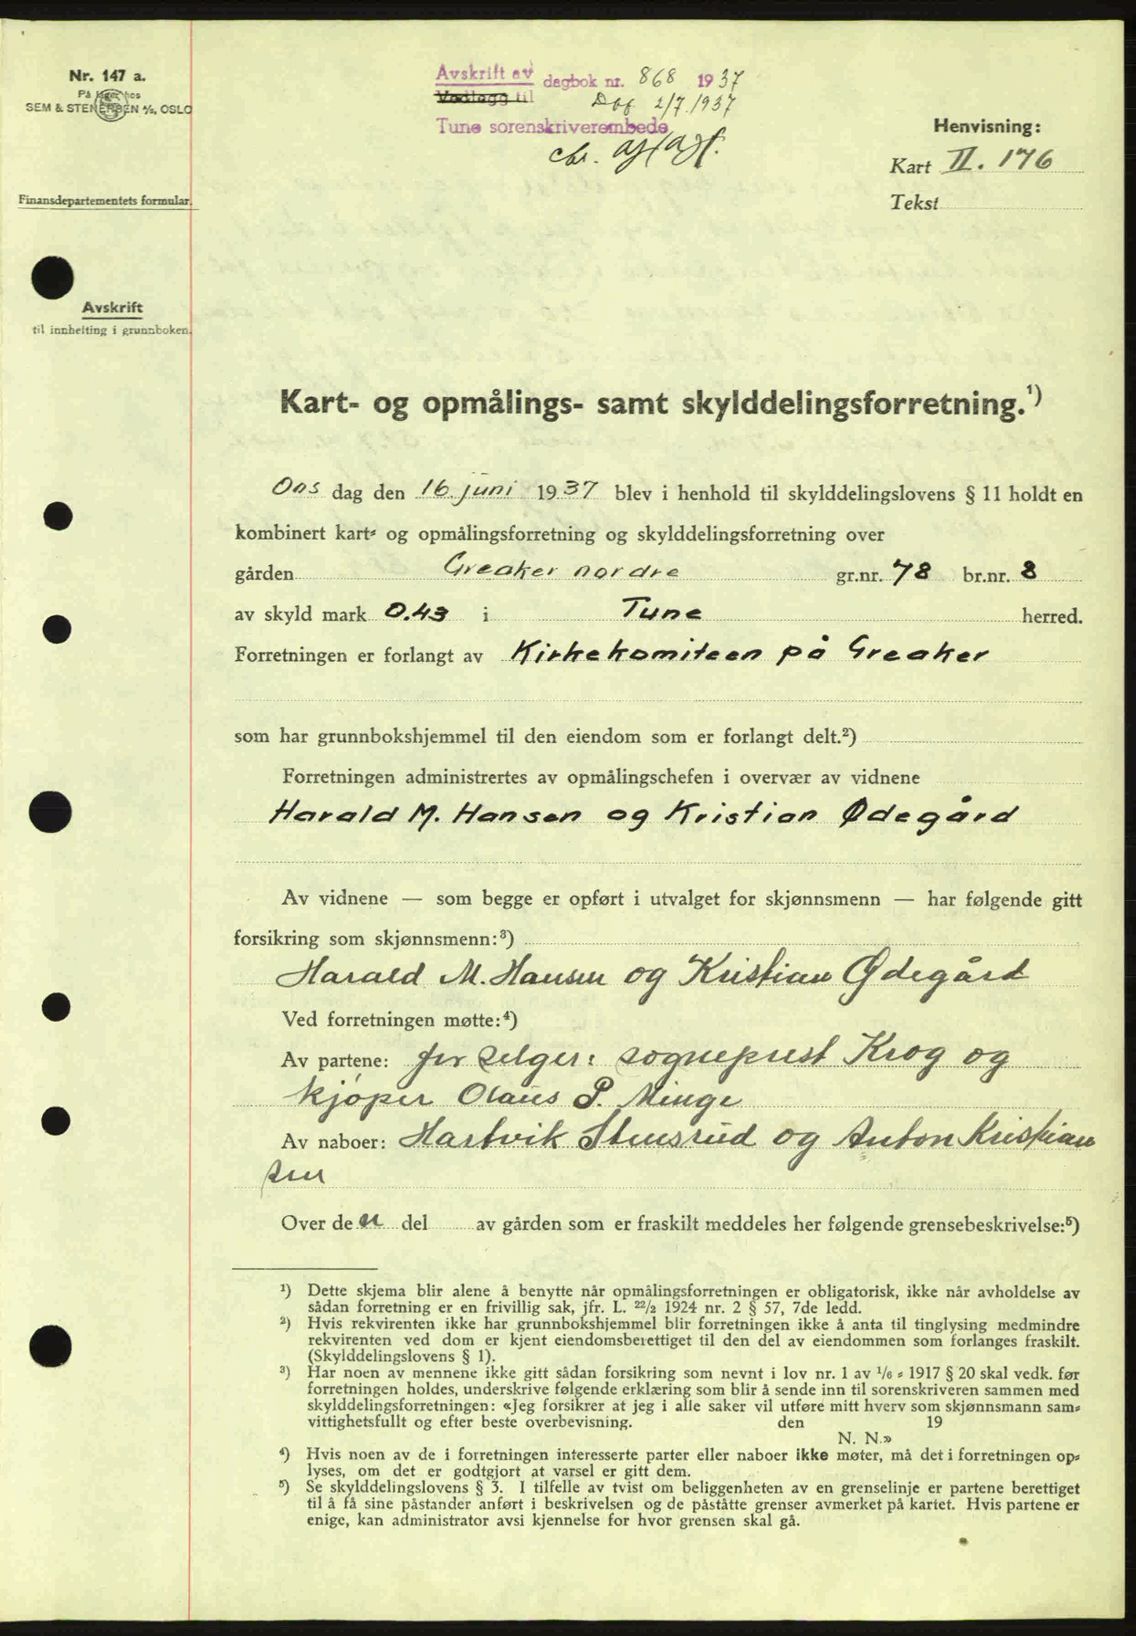 Nr. 147 a.
På lager hos
SEM & STENERSEN A/S, OSLO
Finansdepartementets formular.
Avskrift
til innhefting i grunnboken.
Avskrift av dagbok nr. 868 1937
Vedlegg til Dof 2/7 1937
Tune sorenskriverembede
Henvisning:
Kart II. 176
Tekst
Kart- og opmålings- samt skylddelingsforretning.¹)
Ons dag den 16. juni 1937 blev i henhold til skylddelingslovens § 11 holdt en
kombinert kart- og opmålingsforretning og skylddelingsforretning over
gården Greaker nordre gr.nr. 78 br.nr. 8
av skyld mark 0.43 i Tune herred.
Forretningen er forlangt av Kirkekomiteen på Greaker
som har grunnbokshjemmel til den eiendom som er forlangt delt.²)
Forretningen administrertes av opmålingschefen i overvær av vidnene
Harald M. Hansen og Kristian Ødegård
Av vidnene — som begge er opført i utvalget for skjønnsmenn — har følgende gitt
forsikring som skjønnsmenn:³)
Harald M. Hansen og Kristian Ødegård
Ved forretningen møtte:⁴)
Av partene: for selger: sogneprest Krog og
kjøper Olaus P. Minge
Av naboer: Hartvik Stensrud og Anton Kristian
sen
Over de n del av gården som er fraskilt meddeles her følgende grensebeskrivelse:⁵)
¹) Dette skjema blir alene å benytte når opmålingsforretningen er obligatorisk, ikke når avholdelse av
sådan forretning er en frivillig sak, jfr. L. ²²/₂ 1924 nr. 2 § 57, 7de ledd.
²) Hvis rekvirenten ikke har grunnbokshjemmel blir forretningen ikke å anta til tinglysing medmindre
rekvirenten ved dom er kjent eiendomsberettiget til den del av eiendommen som forlanges fraskilt.
(Skylddelingslovens § 1).
³) Har noen av mennene ikke gitt sådan forsikring som nevnt i lov nr. 1 av ¹/₆ - 1917 § 20 skal vedk. før
forretningen holdes, underskrive følgende erklæring som blir å sende inn til sorenskriveren sammen med
skylddelingsforretningen: «Jeg forsikrer at jeg i alle saker vil utføre mitt hverv som skjønnsmann sam-
vittighetsfullt og efter beste overbevisning. den 19
N. N.»
⁴) Hvis noen av de i forretningen interesserte parter eller naboer ikke møter, må det i forretningen op-
lyses, om det er godtgjort at varsel er gitt dem.
⁵) Se skylddelingslovens § 3. I tilfelle av tvist om beliggenheten av en grenselinje er partene berettiget
til å få sine påstander anført i beskrivelsen og de påståtte grenser avmerket på kartet. Hvis partene er
enige, kan administrator avsi kjennelse for hvor grensen skal gå.